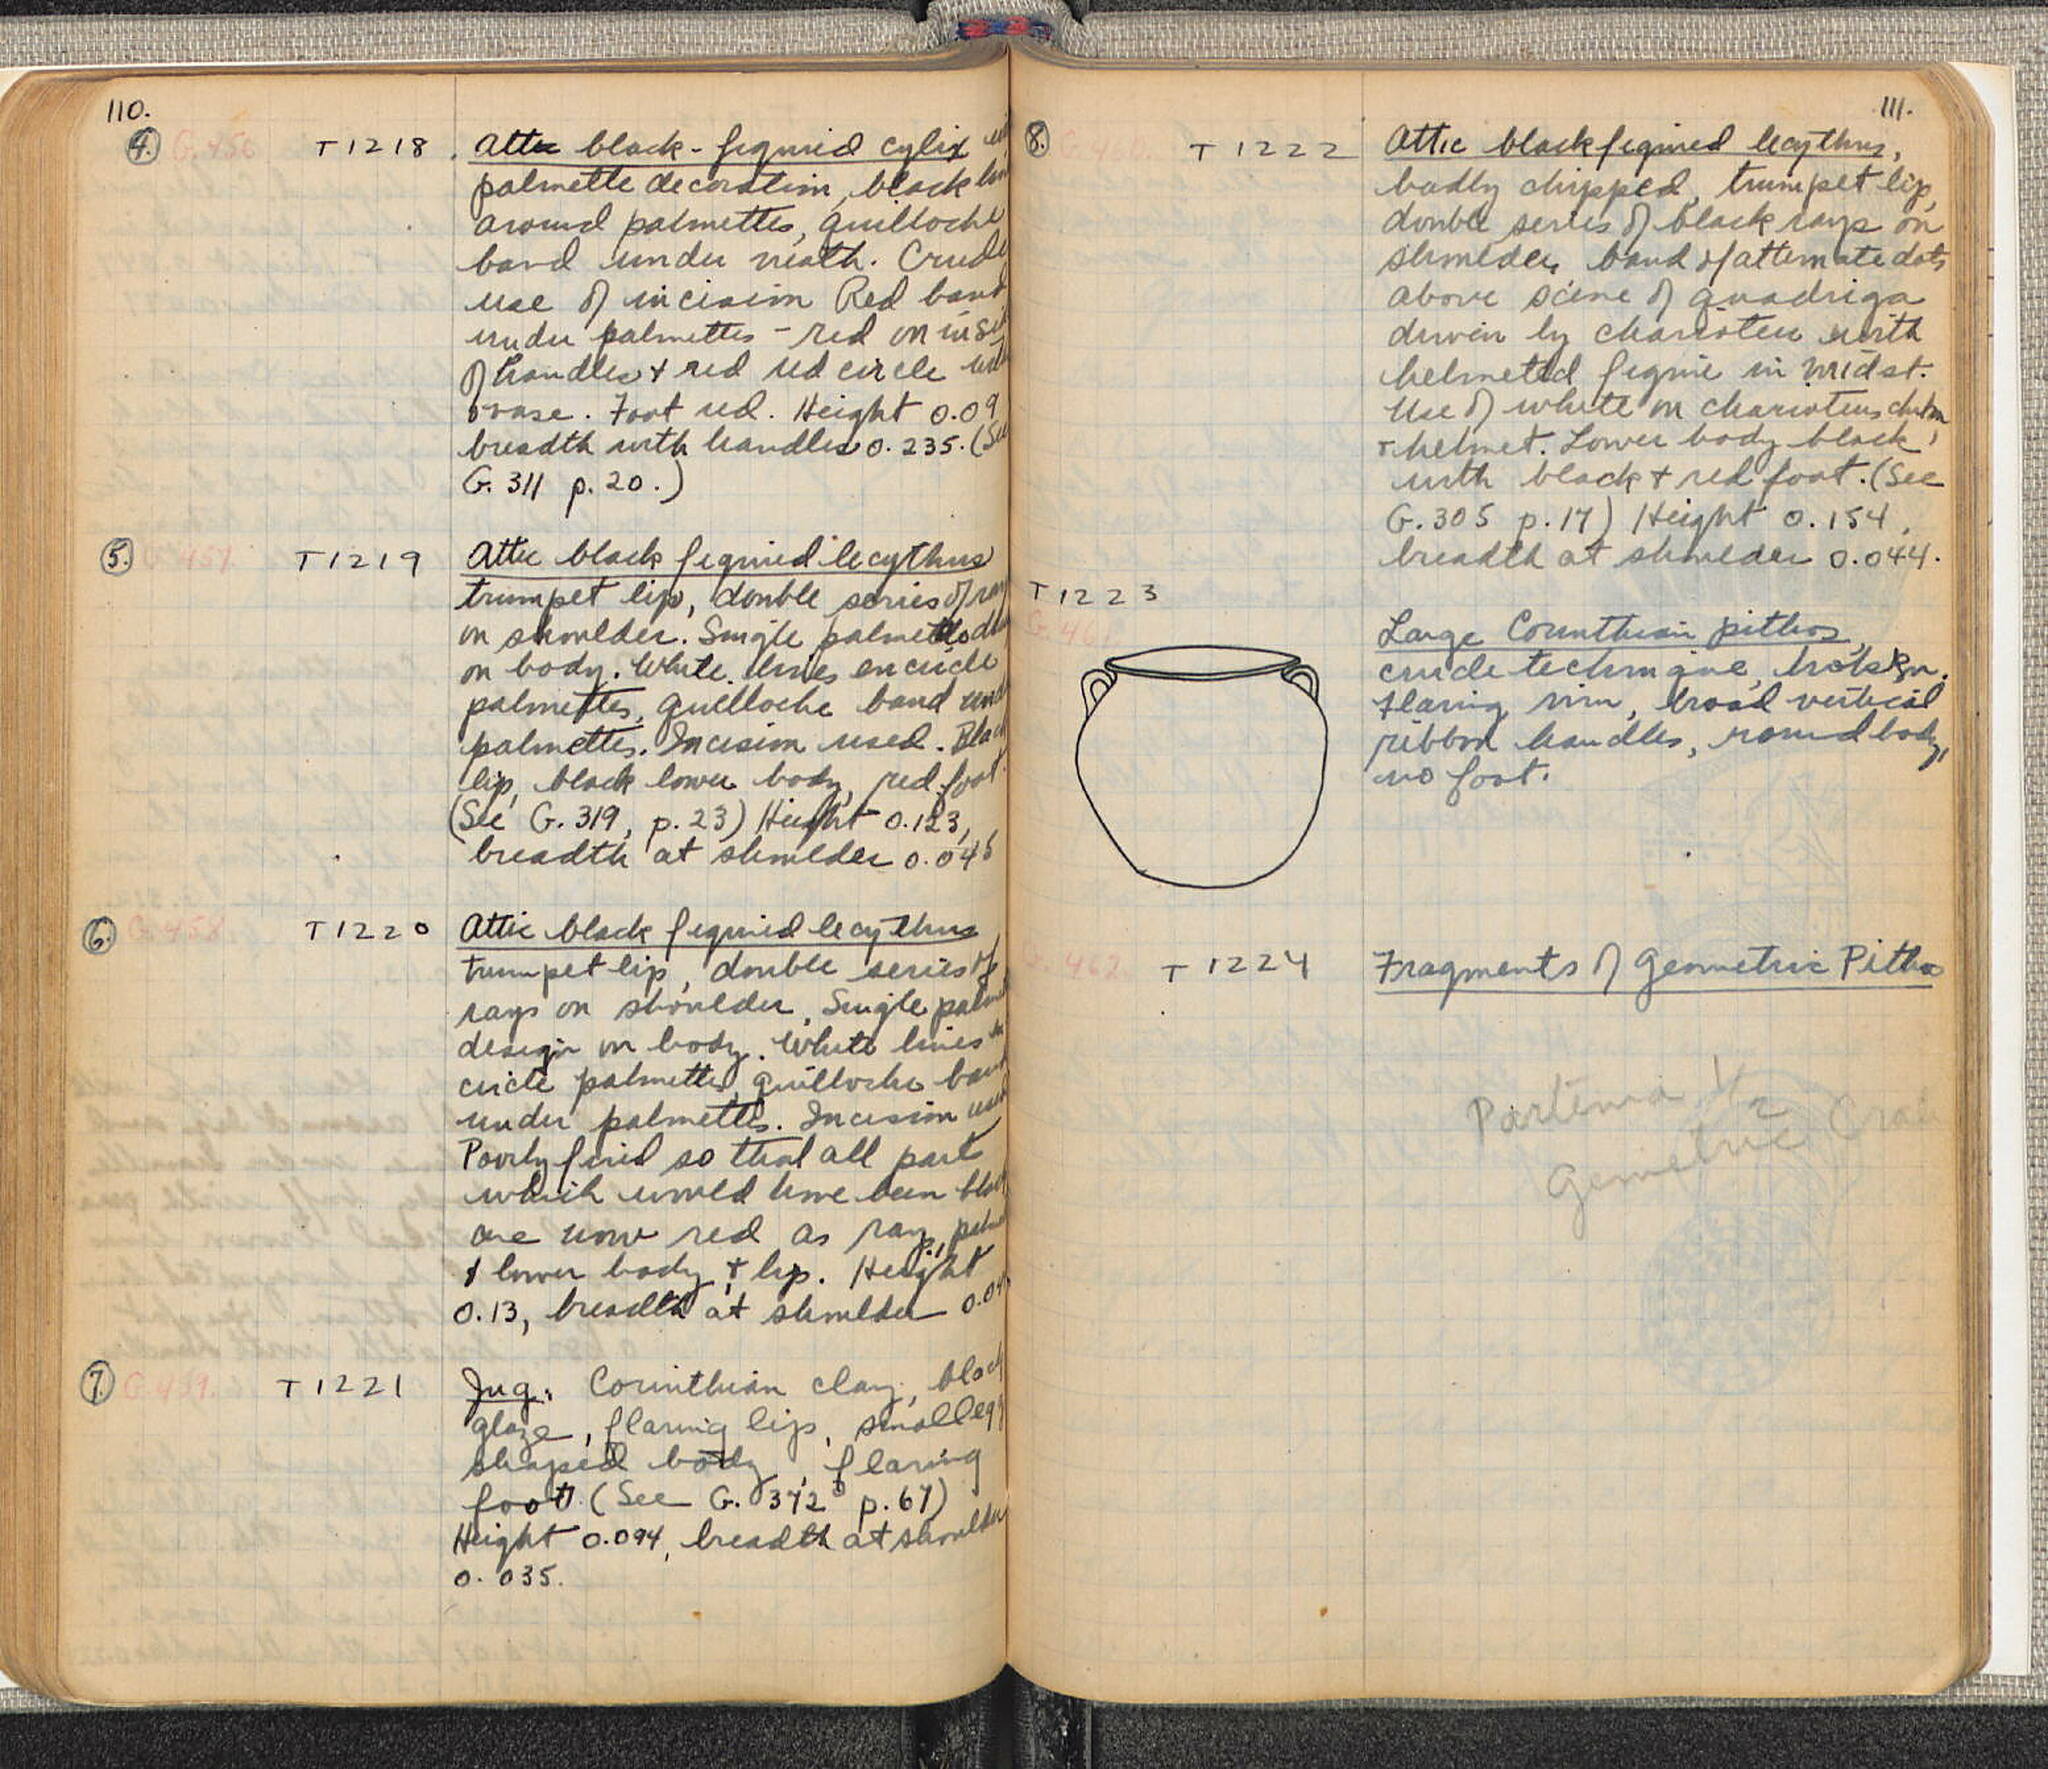 110.
4. G.456 T1218. Attic black-figured cylix
palmette decoration, black
around palmettes, guilloche
band under neath. Crude
use of incision Red band
under palmettes - red on
of handles + red red circle
vase. Foot red. Height 0.09
breadth with handles 0.235. (See
G. 311 p. 20.)
5. G.457. T1219 Attic black figured lecythus
trumpet lip, double series of
on shoulder. Single palmette
on body. White lines encircle
palmettes, guilloche band
palmettes. Incision used. Black
lip, black lower body, red foot.
(See G. 319, p. 23) Height 0.123,
breadth at shoulder
6. G.458. T1220 Attic black figured lecythus
trumpet lip, double series of
rays on shoulder, Single
design on body. White lines
circle palmettes, guilloche
under palmettes. Incision used
Poorly fired so that all part
which would have been
are now red as rays,
lower body + lip. Height
0.13, breadth at shoulder
7. G.459. T1221 Jug. Corinthian clay,
glaze, flaring lip, small
shaped body, flaring
foot. (See G. 372 p. 67)
Height 0.094, breadth at shoulder
0.035.
111.
8. T1222 Attic black figured lecythus,
badly chipped, trumpet lip,
double series of black rays on
shoulder, band of alternate dots
above scene of quadriga
driven by charioteer with
helmeted figure in midst.
Use of white on charioteers
+ helmet. Lower body black,
with black + red foot. (See
G. 305 p. 17) Height 0.154,
breadth at shoulder 0.044.
T1223
Large Corinthian pithos,
crude technique, broken.
Flaring rim, broad vertical
ribbon handles, round body,
no foot.
462. T1224 Fragments of Geometric Pithos
1/2
Geometric